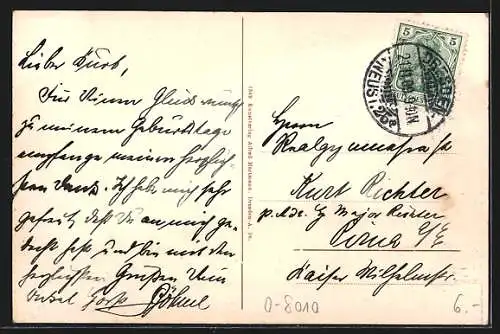 Lieber Kurt,
Für Deinen Glückwunsch
zu meinem Geburtstage
empfange meinen herzlich-
sten Dank. Ich habe mich sehr
gefreut, daß Du an mich ge-
dacht hast und bin mit den
herzlichsten Grüßen Dein
Onkel
5 5
NEUST.
1909 Kunstverlag Alfred Hartmann, Dresden A. 16.
Herrn
Realgymnasiast
Kurt Richter
p. Adr. Major Richter
Pirna a/E
Kaiser Wilhelmstr.
0-8010
6.-